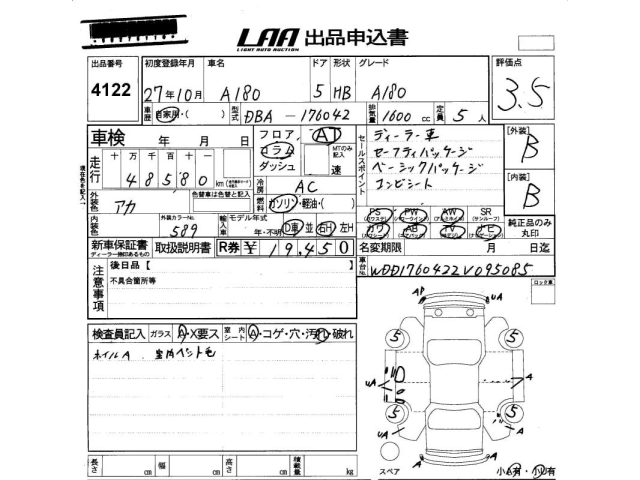 LAA 出品申込書
LIGHT AUTO AUCTION
出品番号 初度登録年月 車名 ドア 形状 グレード 評価点
4122 27年10月 A180 5 HB A180 3.5
車歴 自家用・( ) 型式 DBA-176042 排気量 1600 cc 定員 5 人
車検 年 月 日 フロア AT ディーラー車 【外装】
セールスポイント
走行 十万千百十 コラム MTのみ記入 セーフティパッケージ B
48580 km ダッシュ 速 ベーシックパッケージ
コンビシート 【内装】
現在色を記入 冷房 AC B
外装色 アカ 色替車は色替と記入 燃料 ガソリン・軽油・( )
PS PW AW SR 純正品のみ丸印
(パワステ) (サンルーフ)
内装色 外装カラーNo. 589 輸入車 モデル年式 年・不明 D車 並 右H 左H カワ AB TV ナビ
新車保証書 取扱説明書 R券 ¥ 19,450 名変期限 月 日迄
ディーラー捺印あるもの
注意事項 後日品【 車台No. WDD1760422V095085
不具合箇所等 ロック車
検査員記入 ガラス A・X要ス 室内シート A・コゲ・穴・汚れ・破れ
ホイルA 室内ペット毛
AP UA
5 5
UA A
5 5
UA A
A A
長さ cm 幅 cm 高さ cm 積載量 kg スペア 小A有・小U有